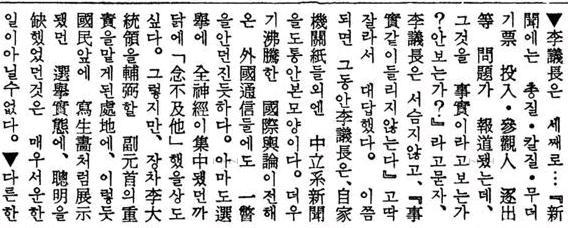 ▼李議長은 세째로…『新
聞에는 총질·칼질·무더
기票 投入·參觀人 逐出
等 問題가 報道됐는데、
그것을 事實이라고보는가
?안보는가?』라고묻자、
李議長은 서슴지않고、『事
實같이들리지않는다』고딱
잘라서 대답했다。 이쯤
되면 그동안李議長은、自家
機關紙들외엔 中立系新聞
을도통안본모양이다。더우
기沸騰한 國際輿論이전해
온 外國通信들에도 一瞥
을안먼진듯하다。아마도選
擧에 全神經이集中됐던까
닭에「念不及他」했을상도
싶다。그렇지만、장차李大
統領을輔弼할 副元首의重
責을맡게된處地에、이렇듯
國民앞에 寫生畵처럼展示
됐던 選擧實態에、聰明을
缺했었던것은 매우서운한
일이아닐수없다。▼다른한